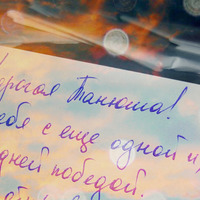 рогая Танюша!
ебя с еще одной и
дней победой.